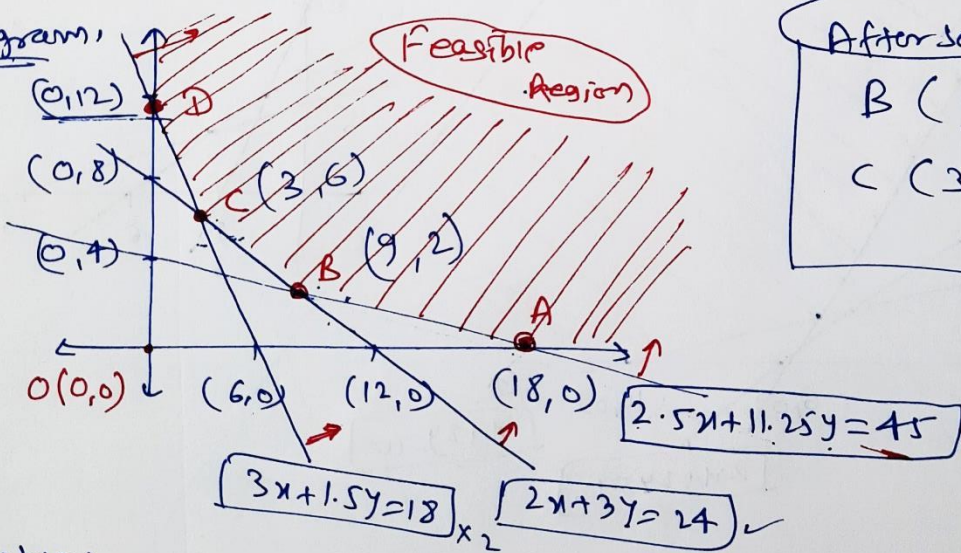 gram,
Feasible
Region
After so
B (
C (3
(0,12) D
(0,8)
C (3,6)
(0,4)
B (9,2)
A
O(0,0)
(6,0)
(12,0)
(18,0)
2.5x+11.25y=45
3x+1.5y=18 x2
2x+3y=24